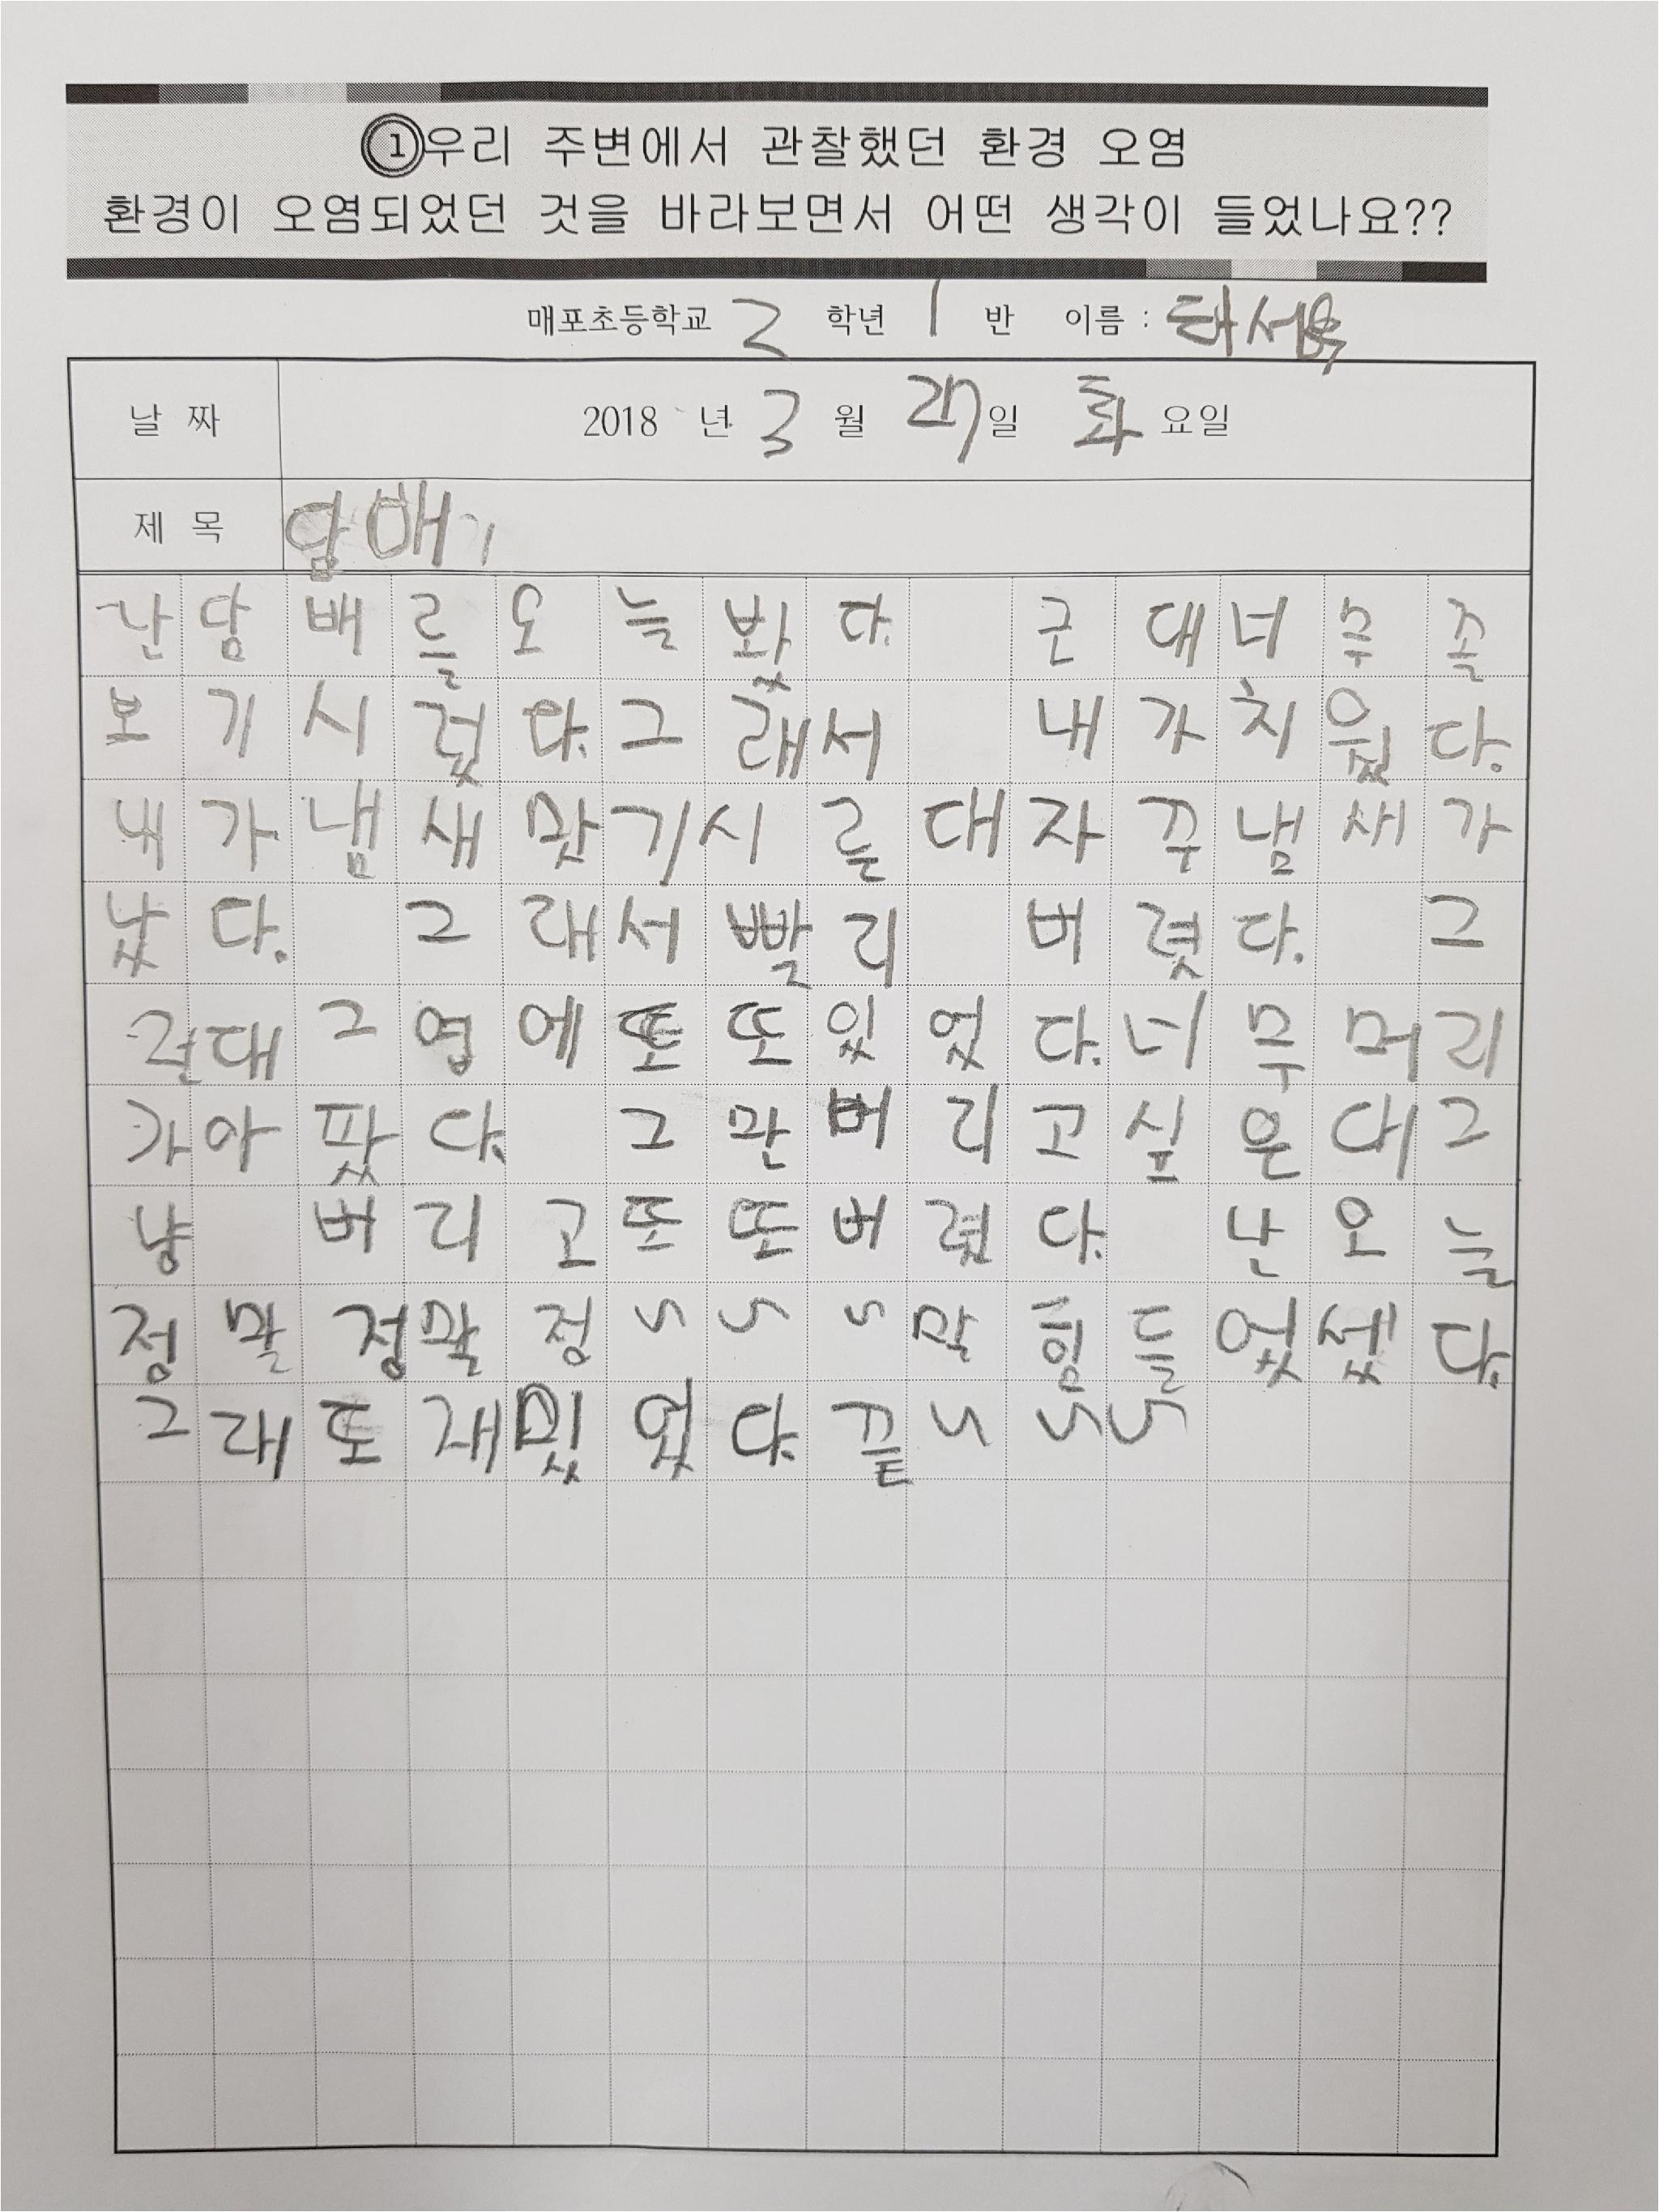 ①우리 주변에서 관찰했던 환경 오염
환경이 오염되었던 것을 바라보면서 어떤 생각이 들었나요??
매포초등학교 2 학년 1 반 이름 :
날 짜 2018 년 3 월 27일 화 요일
제 목 담배
난담배를오늘봤다. 근대너무졸
보기시렀다.그래서 내가치웠다.
내가냄새맞기시른대자꾸냄새가
났다. 그래서빨리 버렷다. 그
런대그엽에또또있었다.너무머리
가아팠다. 그만버리고싶은대그
냥 버리고또또버렸다. 난오늘
정말정말정~~~말힘들었썼다.
그래도재밌었다.끝~~~